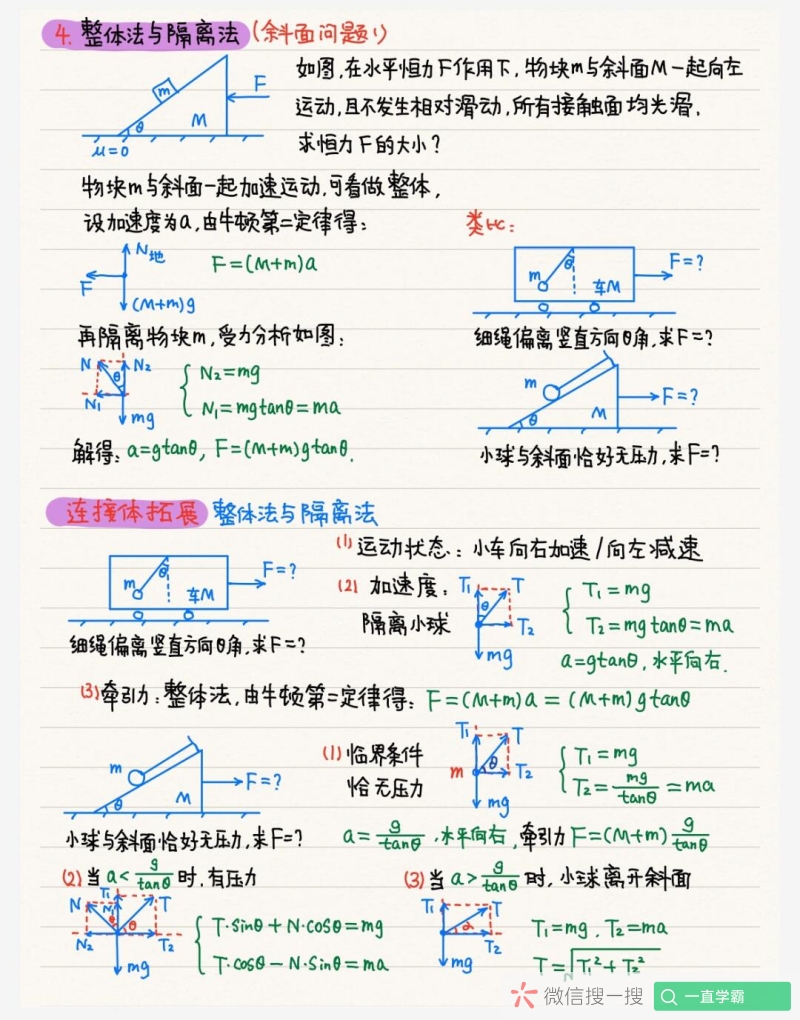 4. 整体法与隔离法(斜面问题1)
m
F
M
θ
μ=0
如图,在水平恒力F作用下,物块m与斜面M一起向左
运动,且不发生相对滑动,所有接触面均光滑,
求恒力F的大小?
物块m与斜面一起加速运动,可看做整体,
设加速度为a,由牛顿第二定律得:
N地
F
(M+m)g
F=(M+m)a
再隔离物块m,受力分析如图:
N
N₂
θ
N₁
mg
N₂=mg
N₁=mgtanθ=ma
解得: a=gtanθ, F=(M+m)gtanθ.
类比:
θ
m
车M
F=?
细绳偏离竖直方向θ角,求F=?
m
θ
M
F=?
小球与斜面恰好无压力,求F=?
连接体拓展 整体法与隔离法
θ
m
车M
F=?
细绳偏离竖直方向θ角,求F=?
(1) 运动状态: 小车向右加速/向左减速
(2) 加速度:
隔离小球
T₁
T
θ
T₂
mg
T₁=mg
T₂=mgtanθ=ma
a=gtanθ,水平向右.
(3)牵引力:整体法,由牛顿第二定律得: F=(M+m)a=(M+m)gtanθ
m
θ
M
F=?
小球与斜面恰好无压力,求F=?
(1) 临界条件
恰无压力
T₁
T
m
θ
T₂
mg
T₁=mg
T₂=mg/tanθ=ma
a=g/tanθ,水平向右,牵引力F=(M+m)g/tanθ
(2)当a<g/tanθ时,有压力
N
T₁
N₁
T
θ
θ
N₂
T₂
mg
T·sinθ+N·cosθ=mg
T·cosθ-N·sinθ=ma
(3)当a>g/tanθ时,小球离开斜面
T₁
T
α
T₂
mg
T₁=mg, T₂=ma
T=√T₁²+T₂²
微信搜一搜
一直学霸